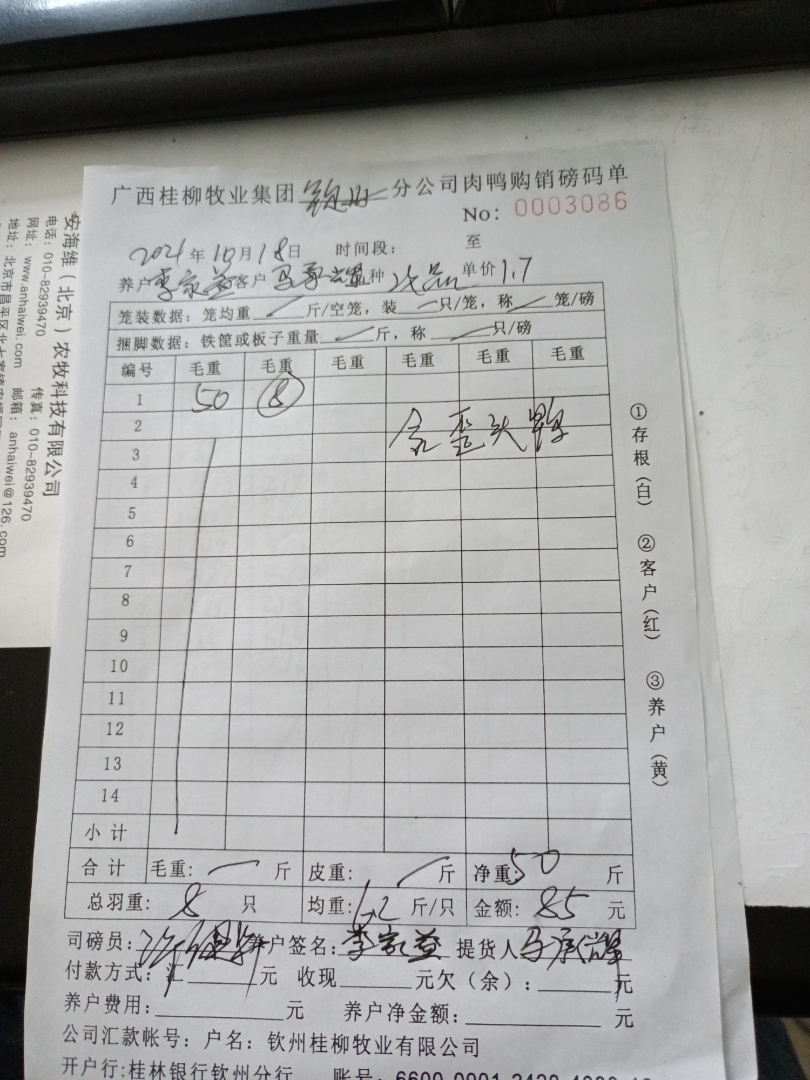 广西桂柳牧业集团钦州分公司肉鸭购销磅码单
No: 0003086
2021年10月18日 时间段: 至
养户李家益客户马承 种 次品 单价1.7
笼装数据: 笼均重 斤/空笼, 装 只/笼, 称 笼/磅
捆脚数据: 铁筐或板子重量 斤, 称 只/磅
编号 毛重 毛重 毛重 毛重 毛重 毛重
1 50 ⑧
2
含歪头鸭
3
4
5
6
7
8
9
10
11
12
13
14
小计
合计 毛重: 斤 皮重: 斤 净重: 50 斤
总羽重: 8 只 均重: 6.2 斤/只 金额: 85 元
司磅员: 养户签名: 李家益 提货人马承
付款方式: 汇 元 收现 元欠(余): 元
养户费用: 元 养户净金额: 元
公司汇款帐号: 户名: 钦州桂柳牧业有限公司
开户行:桂林银行钦州分行 账号: 6600 0001 3420 4000
①存根(白) ②客户(红) ③养户(黄)
安海维(北京)农牧科技有限公司
电话: 010-82939470 传真: 010-82939470
网址: www.anhaiwei.com 邮箱: anhaiwei@126.com
地址: 北京市昌平区北七家镇